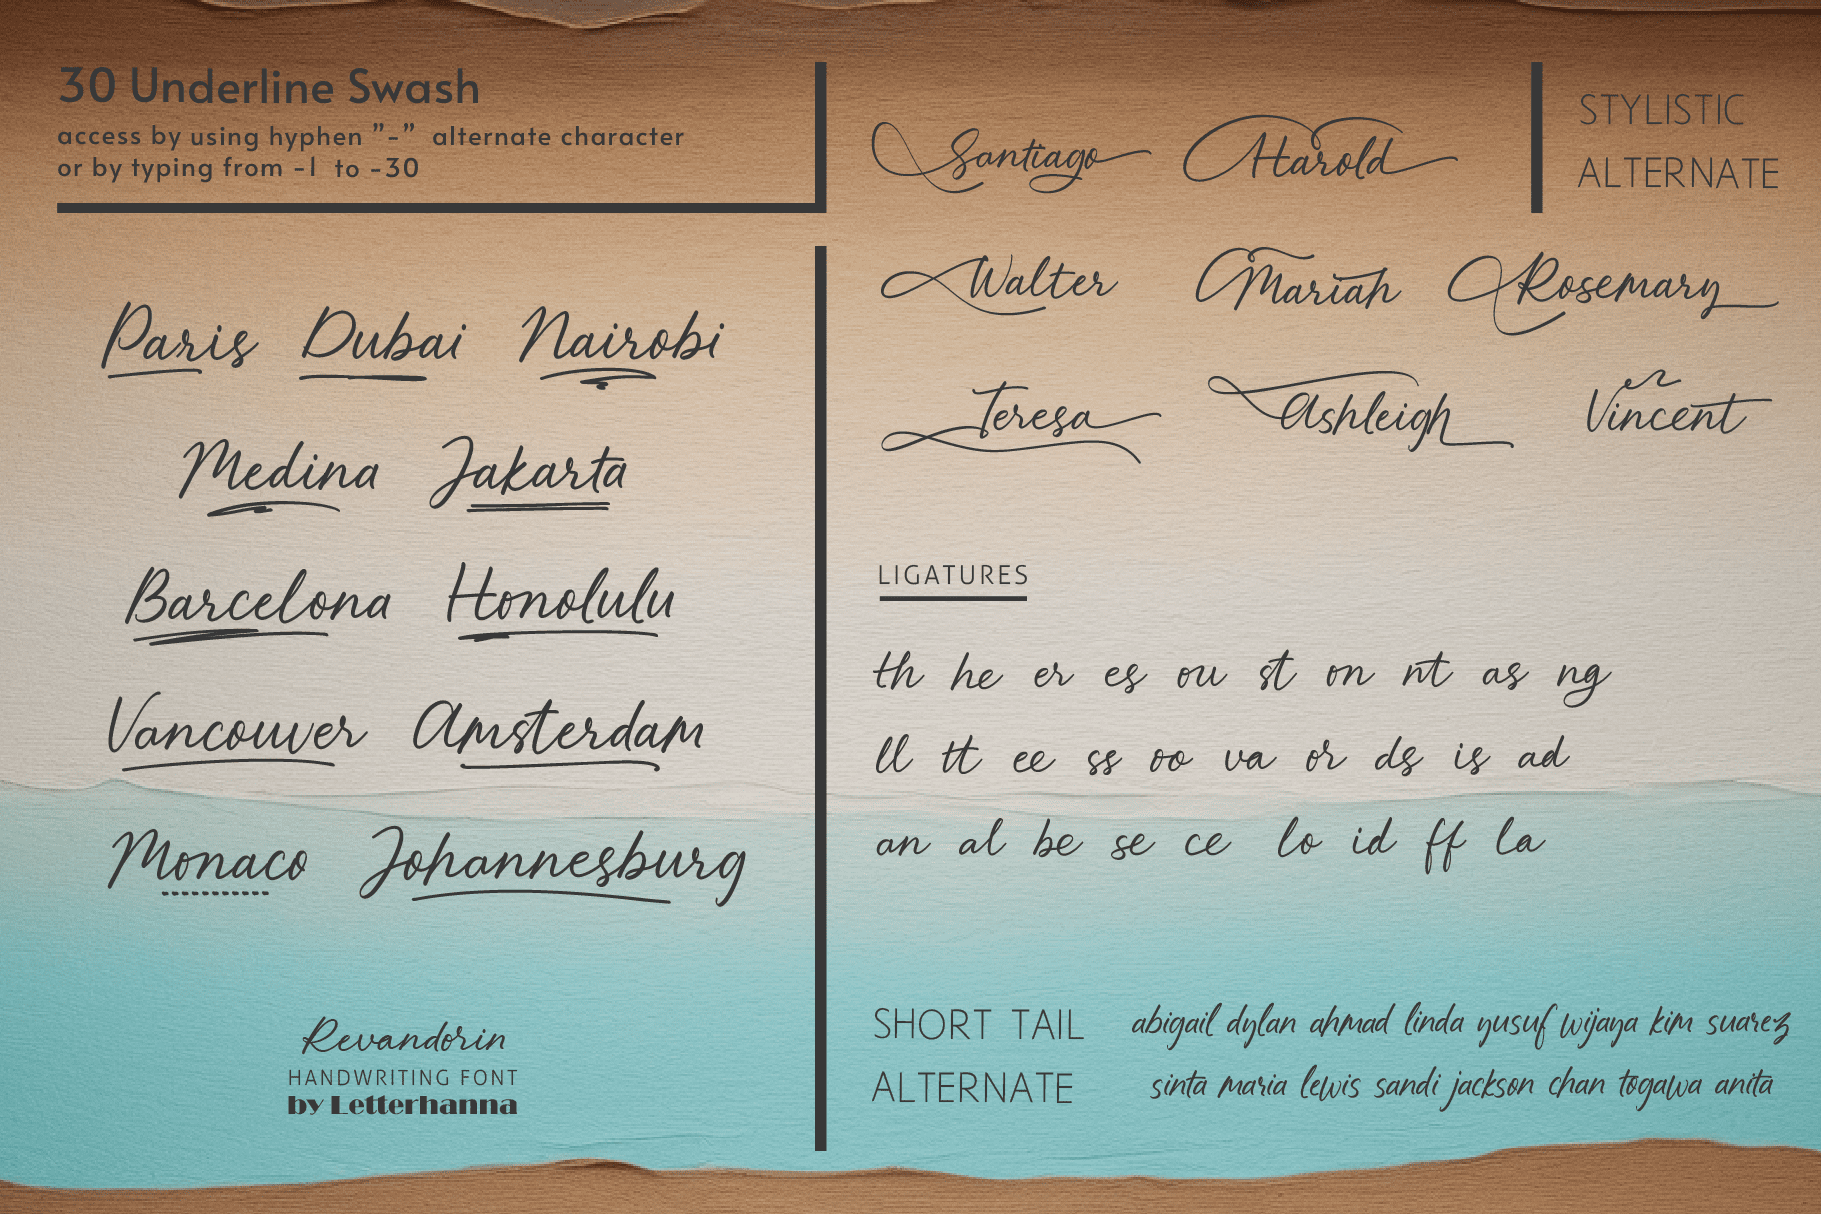 30 Underline Swash
access by using hyphen "-" alternate character
or by typing from -1 to -30
Paris Dubai Nairobi
Medina Jakarta
Barcelona Honolulu
Vancouver Amsterdam
Monaco Johannesburg
Revandorin
HANDWRITING FONT
by Letterhanna
STYLISTIC
ALTERNATE
Santiago Harold
Walter Mariah Rosemary
Teresa Ashleigh Vincent
LIGATURES
th he er es ou st on nt as ng
ll tt ee ss oo va or ds is ad
an al be se ce lo id ff la
SHORT TAIL
ALTERNATE
abigail dylan ahmad linda yusuf wijaya kim suarez
sinta maria lewis sandi jackson chan togawa anita